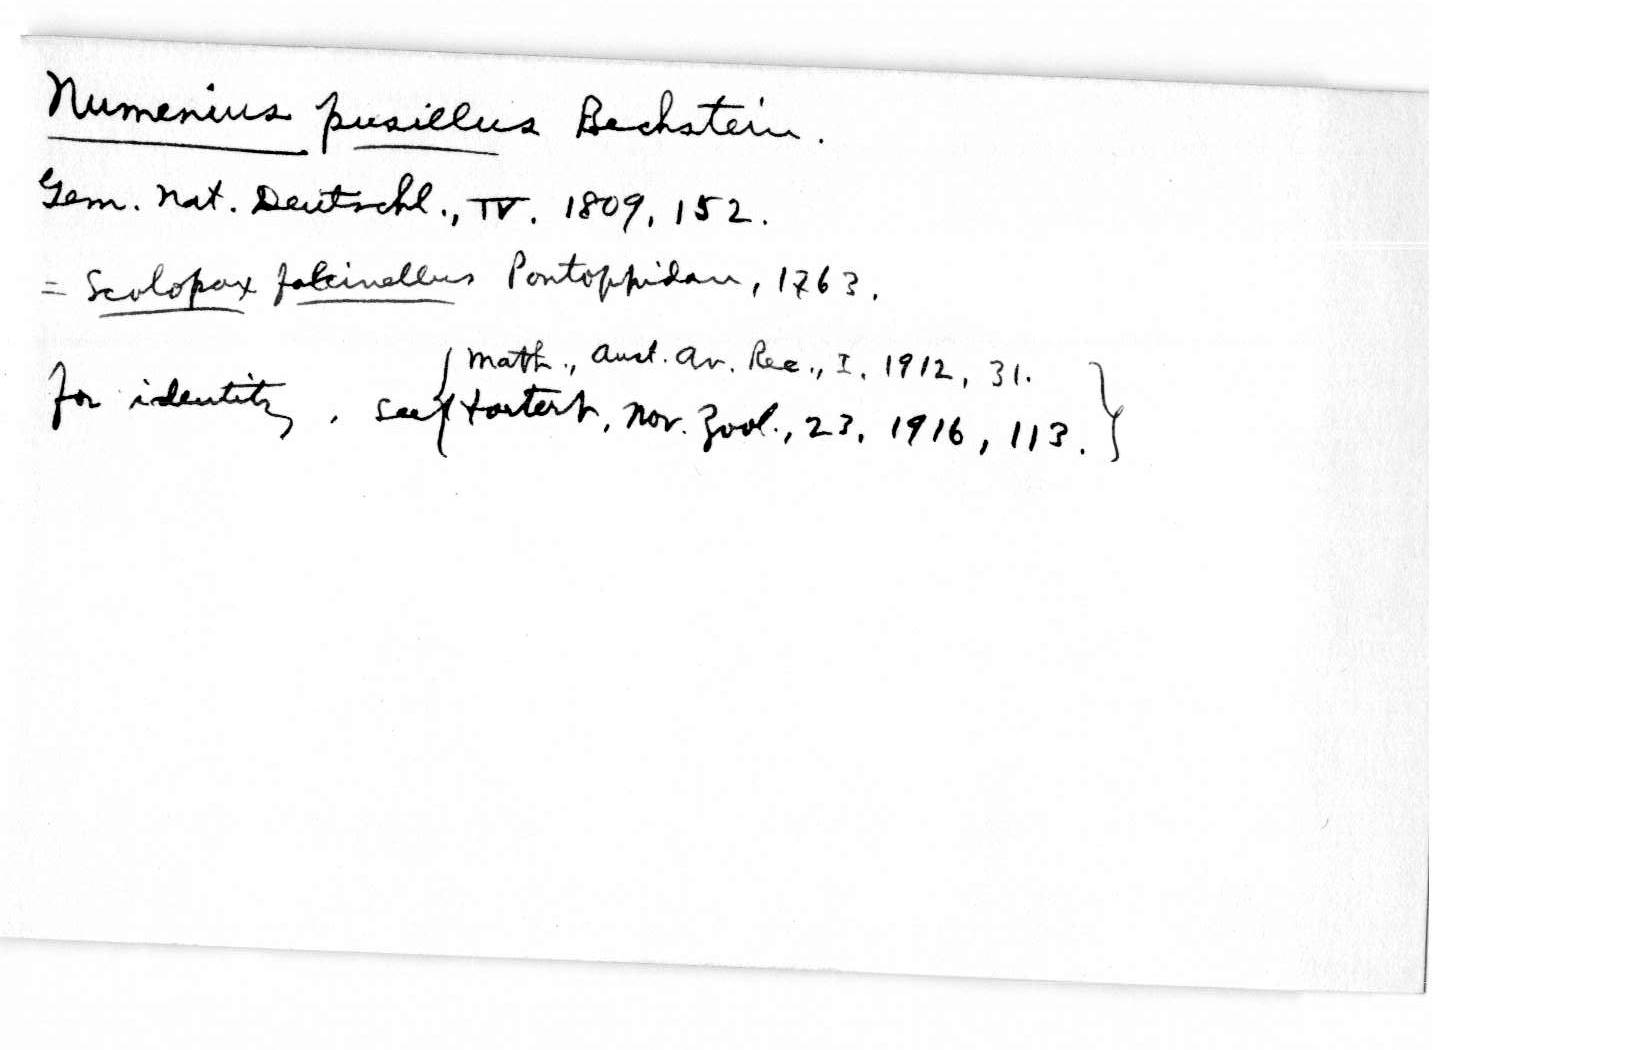 Numenius pusillus Bechstein.
Gem. Nat. Deutschl., IV. 1809, 152.
= Scolopax falcinellus Pontoppidan, 1763.
for identity, see { Math., Aust. Av. Rec., I. 1912, 31.
Hartert, Nov. Zool., 23, 1916, 113. }